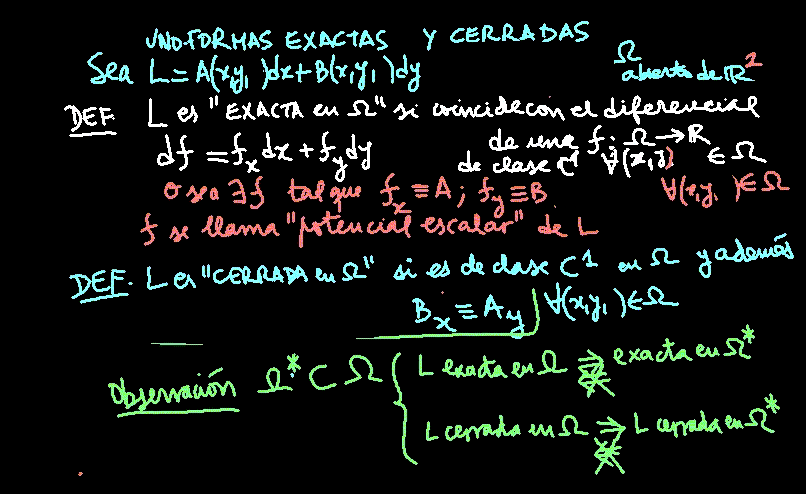 UNO-FORMAS EXACTAS Y CERRADAS
Sea L = A(x,y,)dx + B(x,y,)dy Ω abierto de ℝ²
DEF. L es "EXACTA en Ω" si coincide con el diferencial
df = f_x dx + f_y dy de una f: Ω → ℝ
de clase C¹ ∀(x,y) ∈ Ω
o sea ∃f tal que f_x ≡ A; f_y ≡ B ∀(x,y,) ∈ Ω
f se llama "potencial escalar" de L
DEF. L es "CERRADA en Ω" si es de clase C¹ en Ω y además
B_x ≡ A_y ∀(x,y,) ∈ Ω
Observación Ω* ⊂ Ω { L exacta en Ω ⇒ exacta en Ω*
L cerrada en Ω ⇒ L cerrada en Ω*